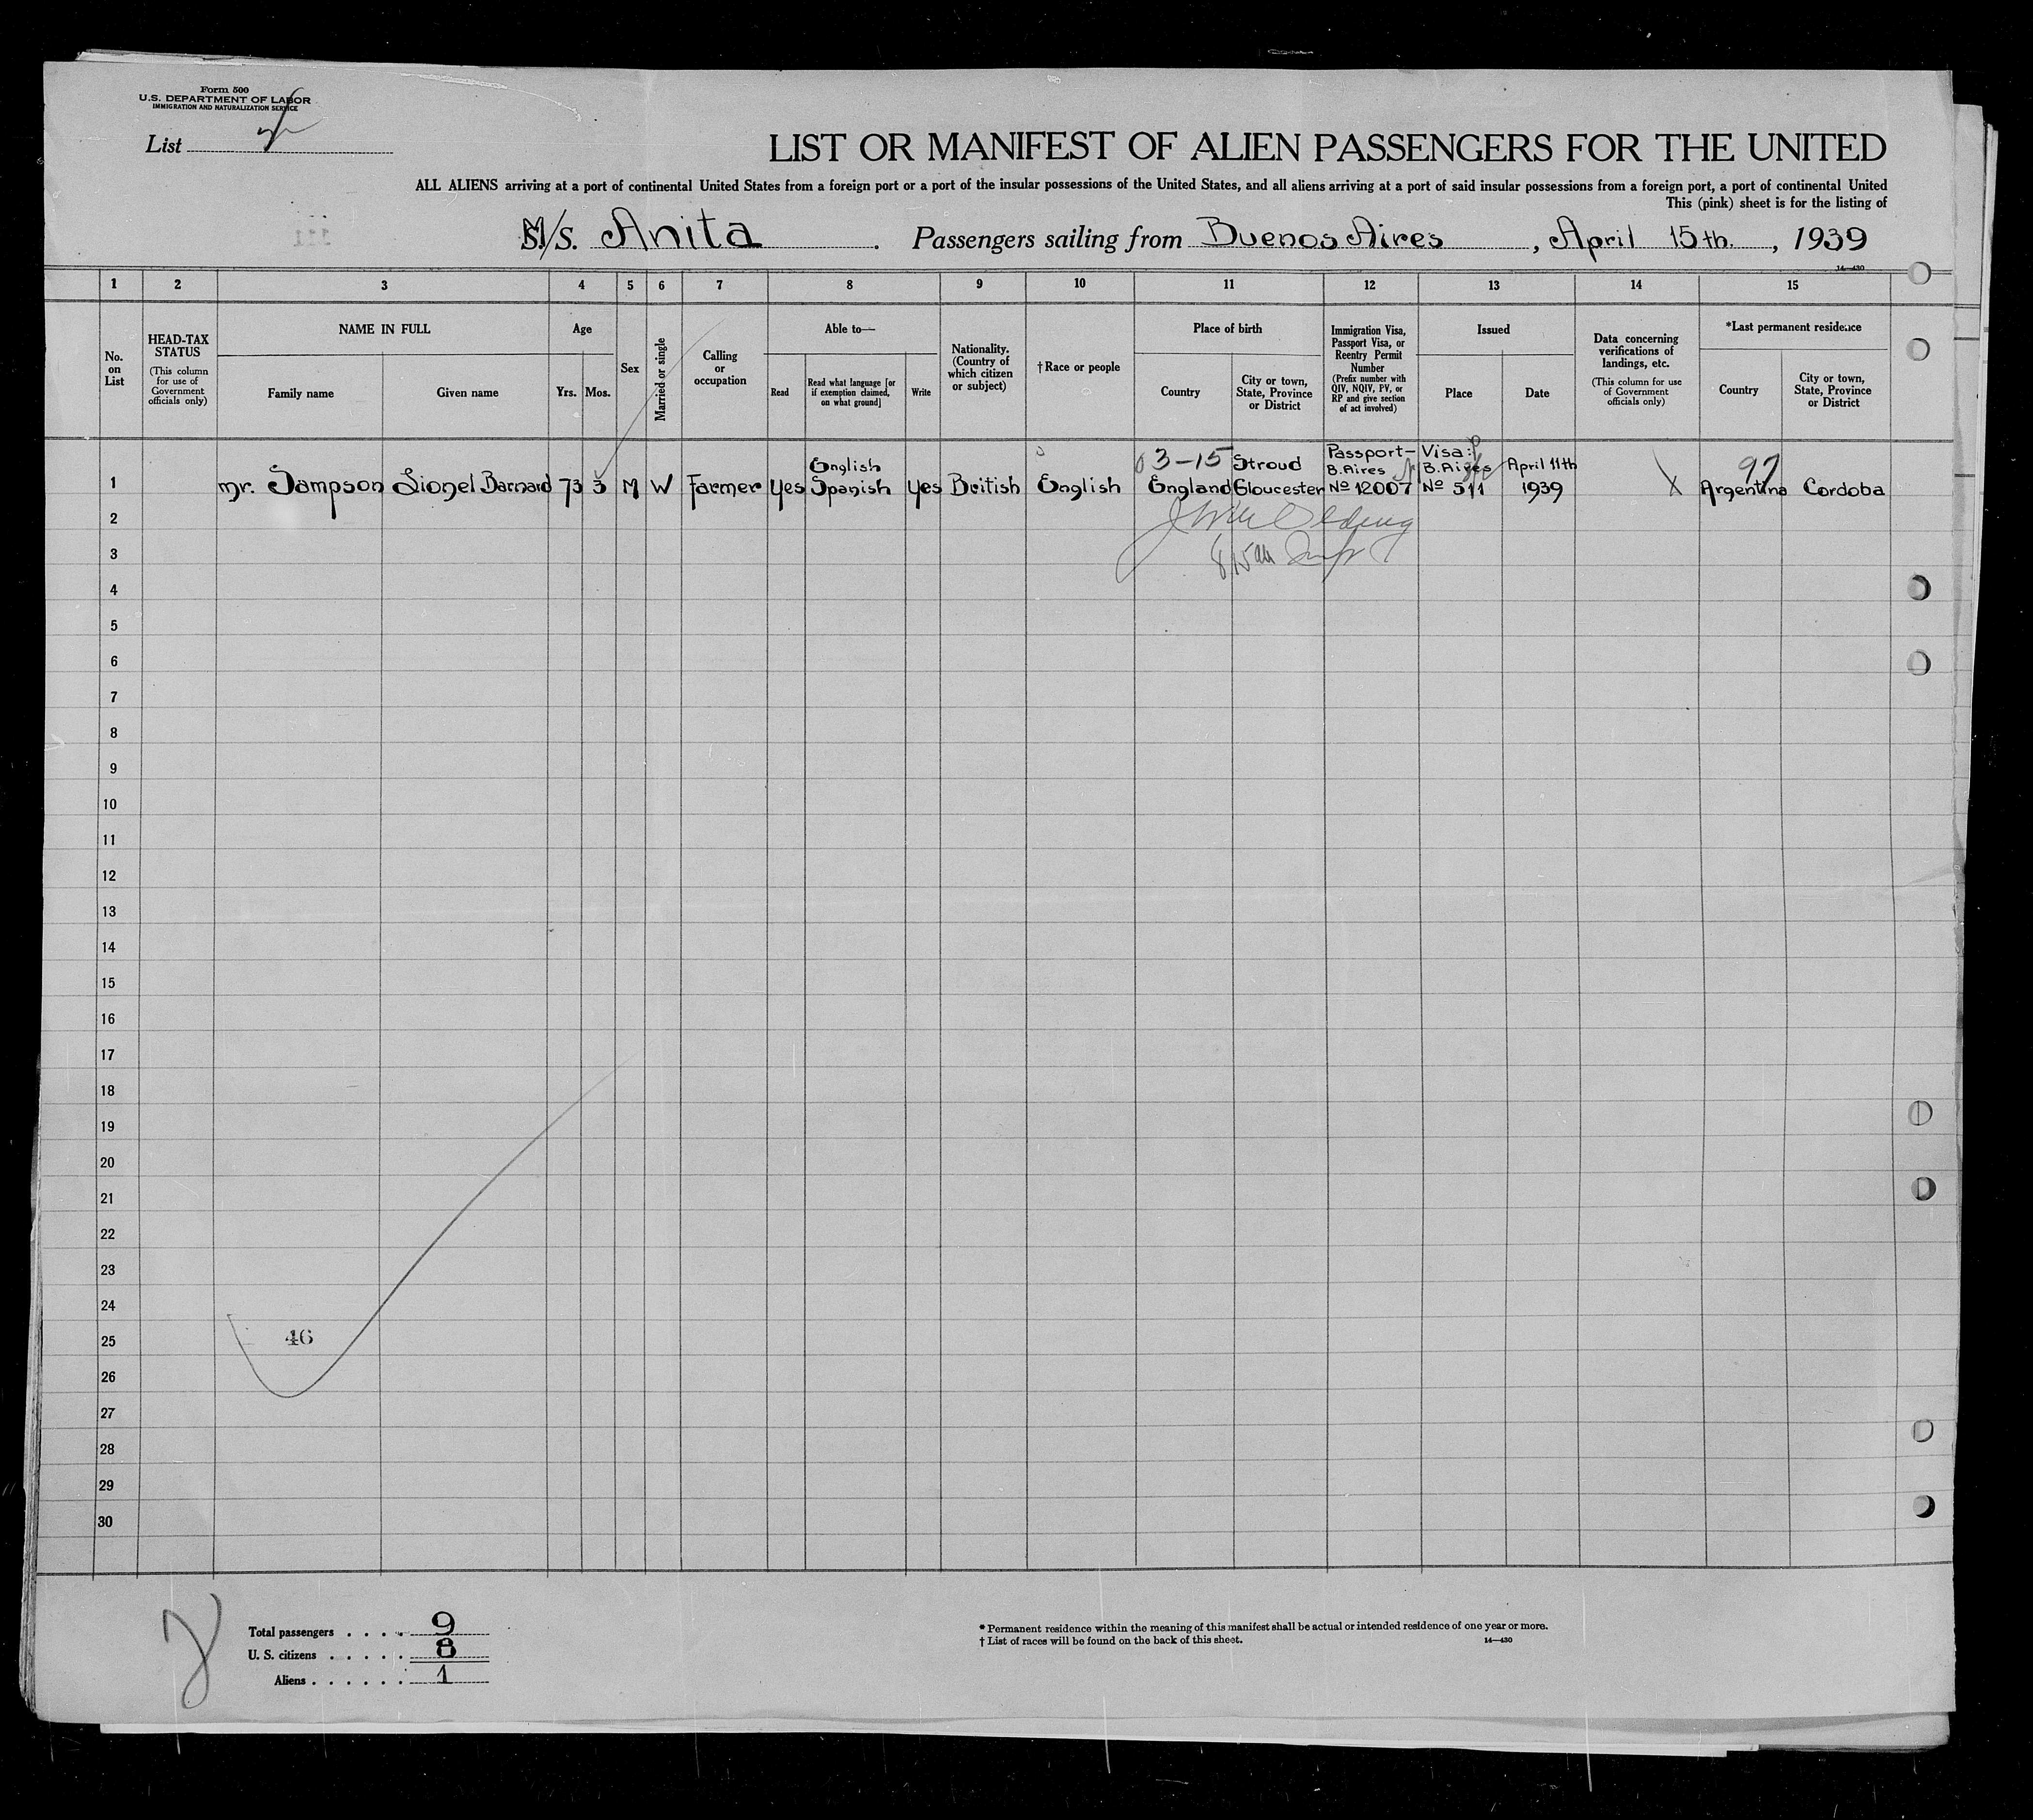 Form 500
U.S. DEPARTMENT OF LABOR
IMMIGRATION AND NATURALIZATION SERVICE
List
LIST OR MANIFEST OF ALIEN PASSENGERS FOR THE UNITED
ALL ALIENS arriving at a port of continental United States from a foreign port or a port of the insular possessions of the United States, and all aliens arriving at a port of said insular possessions from a foreign port, a port of continental United
This (pink) sheet is for the listing of
M/S. Anita . Passengers sailing from Buenos Aires , April 15th. , 1939
14—430
1 2 3 4 5 6 7 8 9 10 11 12 13 14 15
No. on List
HEAD-TAX STATUS
(This column for use of Government officials only)
NAME IN FULL
Family name
Given name
Age
Yrs.
Mos.
Sex
Married or single
Calling or occupation
Able to—
Read
Read what language [or if exemption claimed, on what ground]
Write
Nationality. (Country of which citizen or subject)
†Race or people
Place of birth
Country
City or town, State, Province or District
Immigration Visa, Passport Visa, or Reentry Permit Number
(Prefix number with QIV, NQIV, PV, or RP and give section of act involved)
Issued
Place
Date
Data concerning verifications of landings, etc.
(This column for use of Government officials only)
*Last permanent residence
Country
City or town, State, Province or District
3-15 Stroud Passport- Visa:
English B.Aires B.Aires April 11th 97
1 Mr. Sampson Lionel Barnard 73 3 M W Farmer Yes Spanish Yes British English England Gloucester Nº 12007 Nº 511 1939 Argentina Cordoba
2
3
4
5
6
7
8
9
10
11
12
13
14
15
16
17
18
19
20
21
22
23
24
25 46
26
27
28
29
30
Total passengers . . . . 9
U. S. citizens . . . . . 8
Aliens . . . . . . 1
* Permanent residence within the meaning of this manifest shall be actual or intended residence of one year or more.
† List of races will be found on the back of this sheet. 14—430